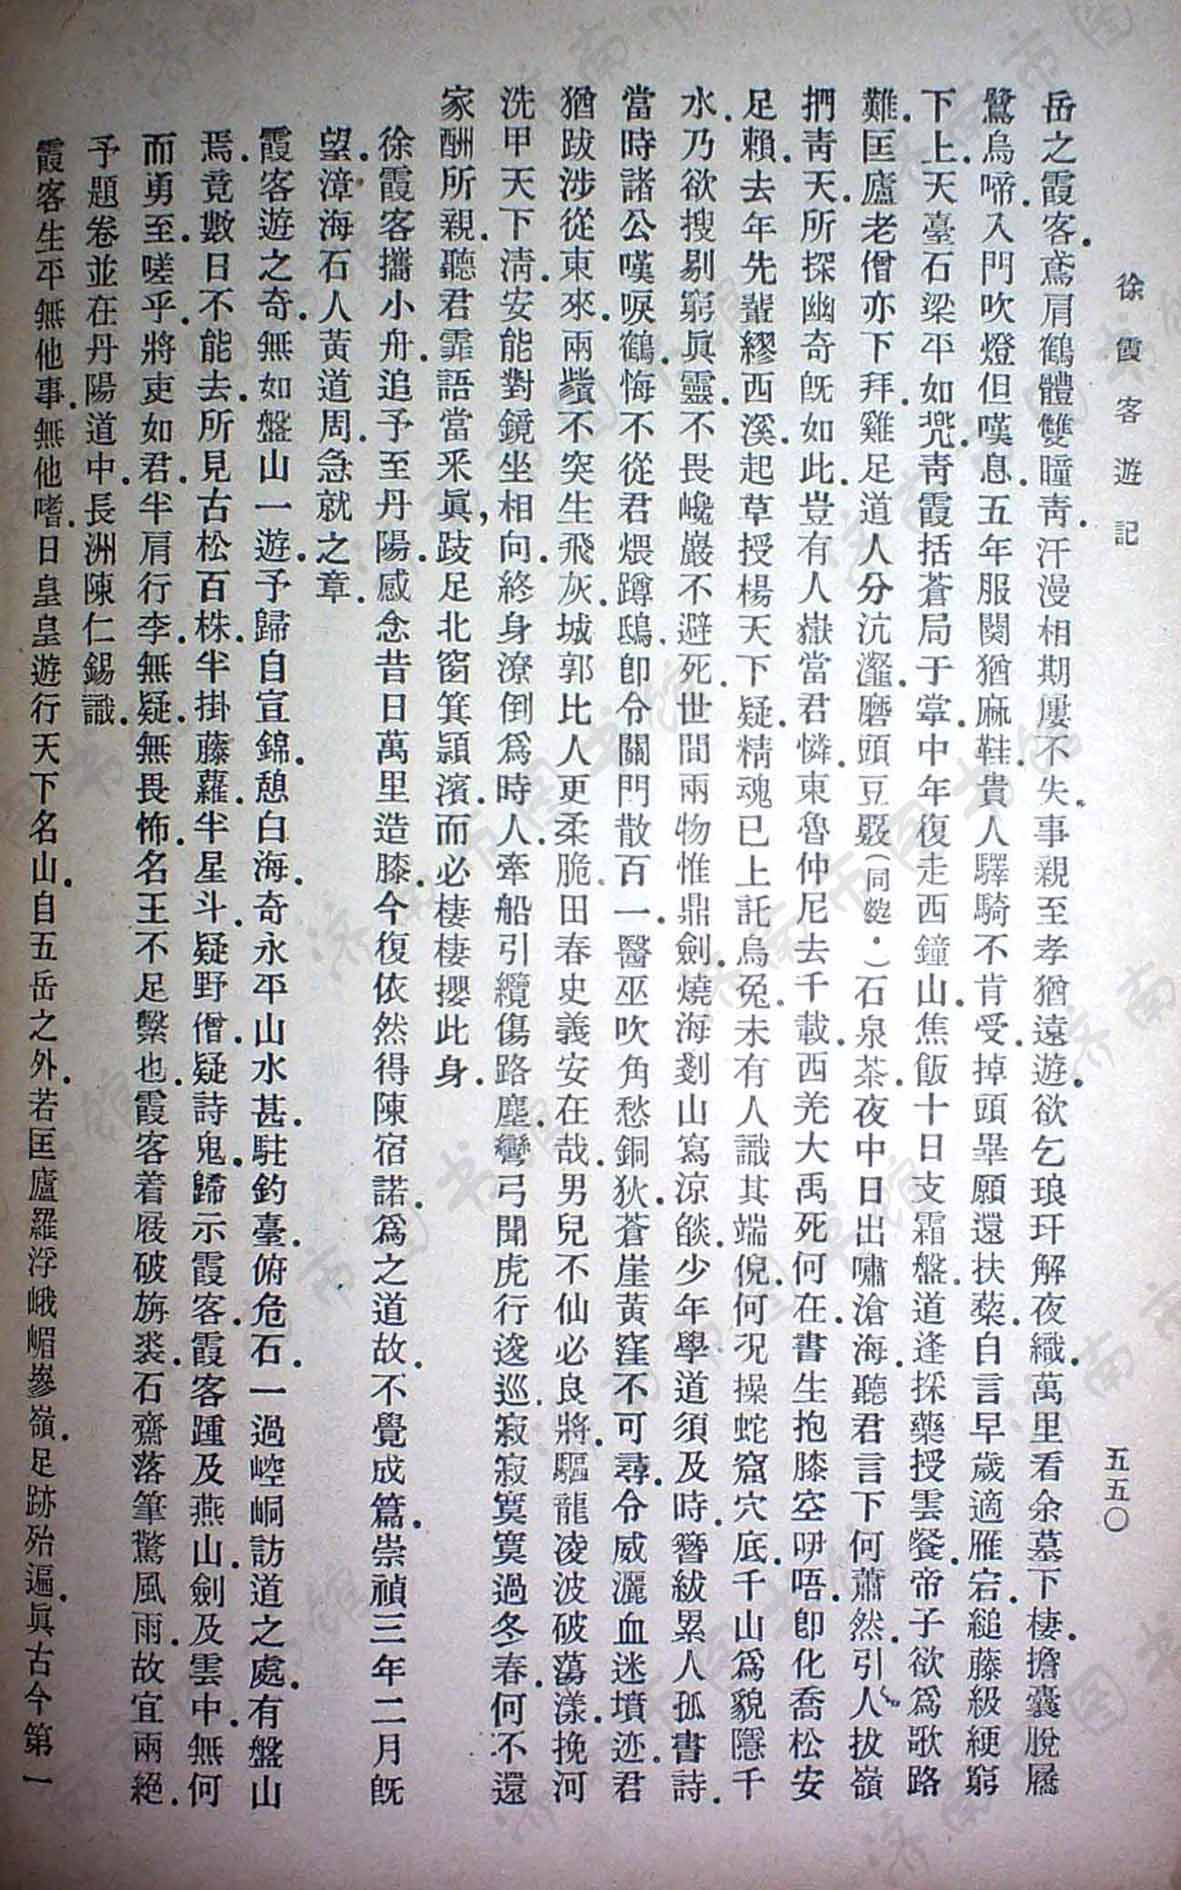 徐霞客遊記
五五〇
岳之霞客.鳶肩鶴體雙瞳靑.汗漫相期屢不失.事親至孝猶遠遊.欲乞琅玕解夜織.萬里看余墓下棲.擔囊脫屩
鷺烏啼.入門吹燈但嘆息.五年服闋猶麻鞋.貴人驛騎不肯受.掉頭畢願還扶藜.白言早歲適雁宕.縋藤級綆窮
下上.天臺石梁平如凳.靑霞括蒼局于掌.中年復走西鐘山.焦飯十日支霜盤.道逢採藥授雲餐.帝子欲爲歌路
難.匡廬老僧亦下拜.雞足道人分沆瀣.磨頭豆㲄(同𣫙.)石泉茶.夜中日出嘯滄海.聽君言下何蕭然.引人拔嶺
捫靑天.所探幽奇既如此.豈有人嶽當君憐.東魯仲尼去千載.西羌大禹死何在.書生抱膝空呻唔.卽化喬松安
足賴.去年先輩繆西溪.起草授楊天下疑.精魂已上託烏兔.未有人識其端倪.何況操蛇窟穴底.千山爲貌隱千
水.乃欲搜剔窮眞靈.不畏巉巖不避死.世間兩物惟鼎劍.燒海剗山寫涼燄.少年學道須及時.簪紱累人孤書詩.
當時諸公嘆唳鶴.悔不從君煨蹲鴟.卽令關門散百一.醫巫吹角愁銅狄.蒼崖黃窪不可尋.令威灑血迷墳迹.君
猶跋涉從東來.兩鬢不突生飛灰.城郭比人更柔脆.田春史義安在哉.男兒不仙必良將.驅龍凌波破蕩漾.挽河
洗甲天下淸.安能對鏡坐相向.終身潦倒爲時人.牽船引纜傷路塵.彎弓聞虎行逡巡.寂寂寞寞過冬春.何不還
家酬所親.聽君霏語當釆眞,跂足北窗箕潁濱.而必棲棲攖此身.
徐霞客攜小舟.追予至丹陽.感念昔日萬里造膝.今復依然得陳宿諾.爲之道故.不覺成篇.崇禎三年二月旣
望.漳海石人黃道周.急就之章.
霞客遊之奇.無如盤山一遊.予歸自宣錦.憩白海.奇永平山水甚.駐釣臺.俯危石.一過崆峒訪道之處.有盤山
焉.竟數日不能去.所見古松百株.半掛藤蘿.半星斗.疑野僧.疑詩鬼.歸示霞客.霞客踵及燕山.劍及雲中.無何
而勇至.嗟乎.將吏如君.半肩行李.無疑.無畏怖.名王不足繫也.霞客着屐破旃裘.石齋落筆驚風雨.故宜兩絕.
予題卷並在丹陽道中.長洲陳仁錫識.
霞客生平無他事.無他嗜.日皇皇遊行天下名山.自五岳之外.若匡廬羅浮峨嵋嵾嶺.足跡殆遍.眞古今第一